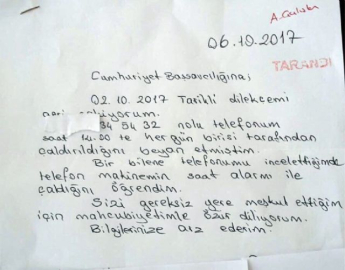 A. Culuk
06.10.2017
TARANDI
Cumhuriyet Başsavcılığına;
02.10.2017 Tarihli dilekçemi
geri çekiyorum.
34 54 32 nolu telefonum
saat 14.00 te her gün birisi tarafından
çaldırıldığını beyan etmiştim.
Bir bilene telefonumu incelettiğimde
telefon makinemin saat alarmı ile
çaldığını öğrendim.
Sizi gereksiz yere meşkul ettiğim
için mahcubiyetimle özür diliyorum.
Bilgilerinize arz ederim.